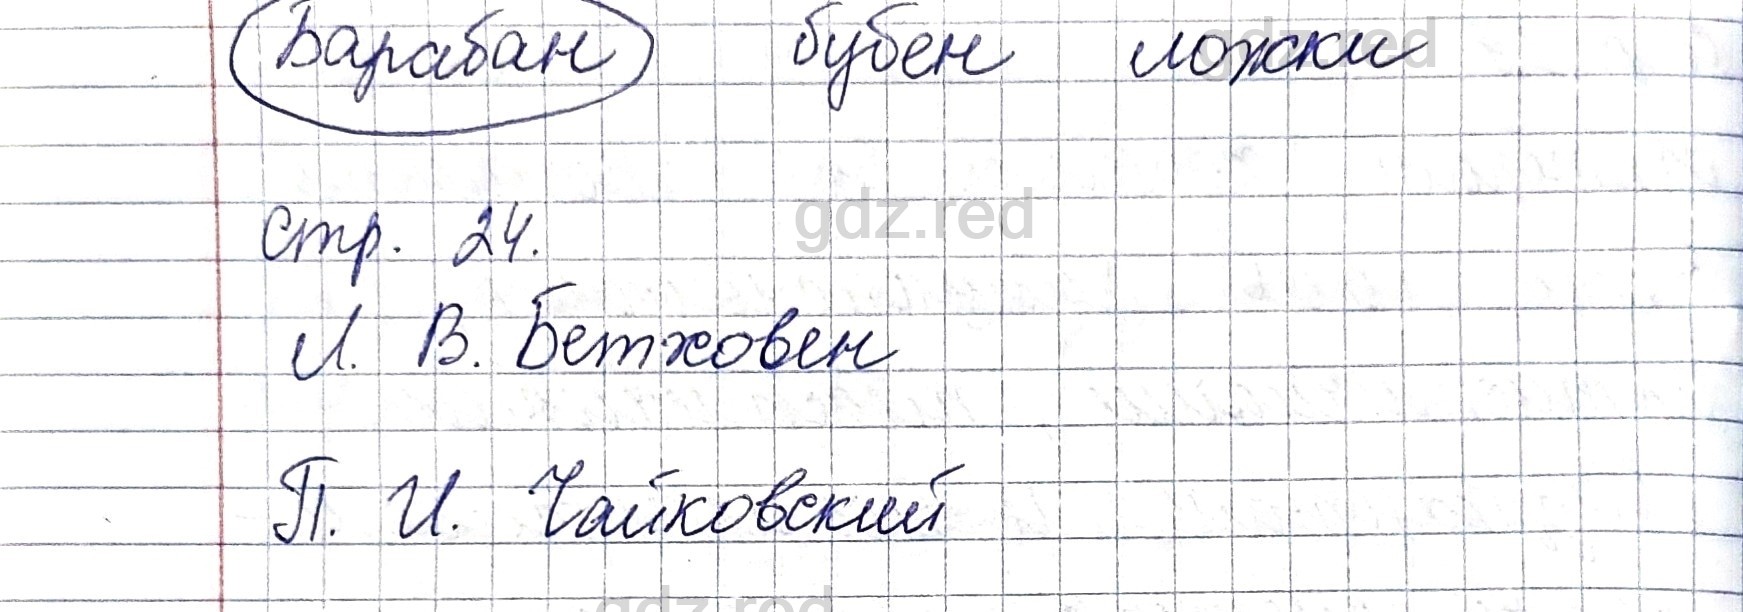 Барабан бубен ложки
gdz.red
стр. 24.
gdz.red
Л. В. Бетховен
П. И. Чайковский
gdz.red